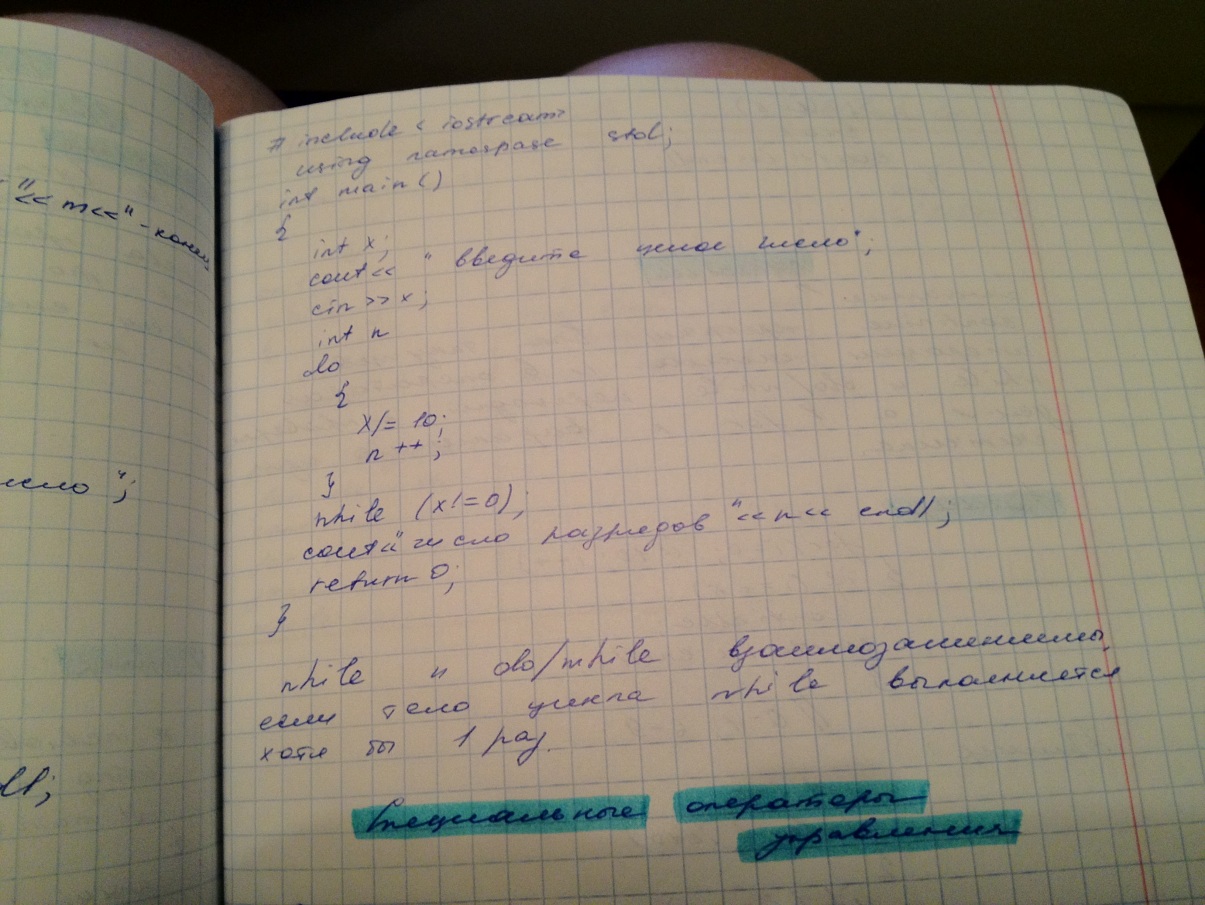 "<< m<<" - конец
число ";
dl;
# include < iostream>
using namespase std;
int main ()
{
int x;
cout << " введите целое число";
cin >> x;
int n
do
{
x/= 10;
n ++ ;
}
while (x!=0);
cout<" число разрядов "<<n<< endl;
return 0;
}
while и do/while взаимозаменимы,
если тело цикла while выполняется
хотя бы 1 раз.
Специальные операторы
управления